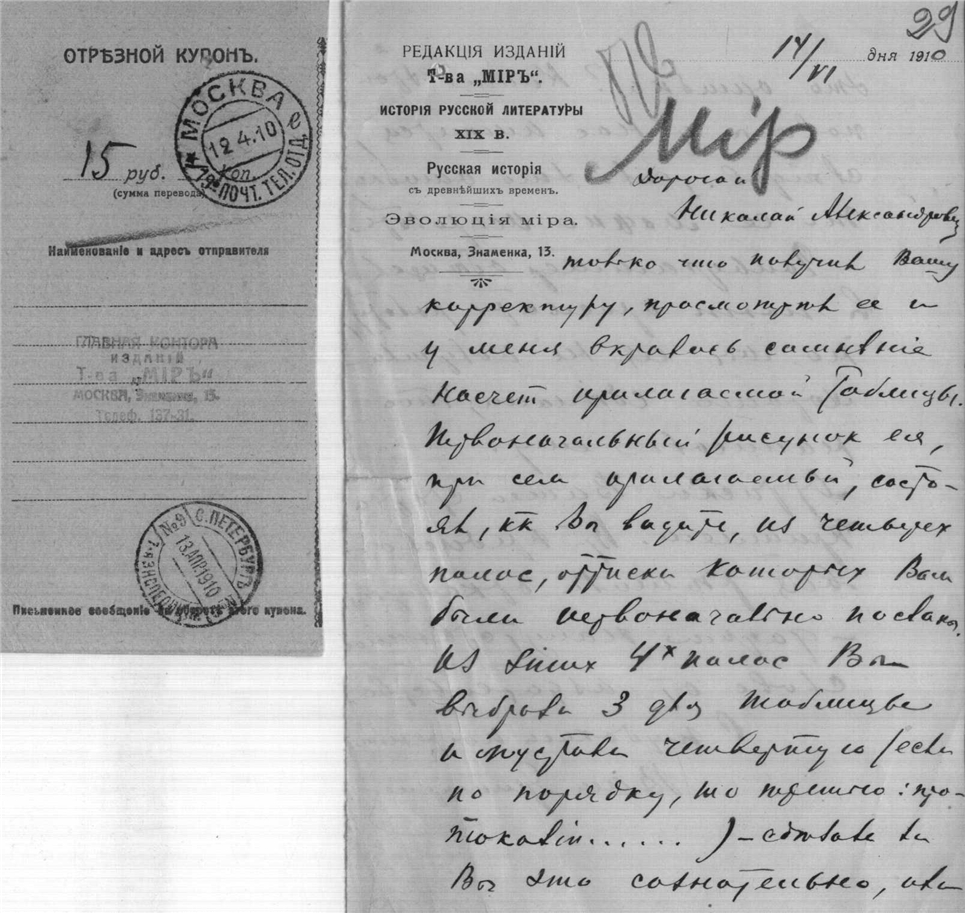 ОТРѢЗНОЙ КУПОНЪ.
МОСКВА
12.4.10
19е ПОЧТ. ТЕЛ. ОТД.
15 руб. коп.
(сумма перевода)
Наименованіе и адресъ отправителя
ГЛАВНАЯ КОНТОРА
ИЗДАНІЙ
Т-ва „МІРЪ“
МОСКВА, Знаменка, 13.
Телеф. 137-31.
С. ПЕТЕРБУРГЪ
№9
13 АПР 1910
Письменное сообщеніе на оборотѣ этого купона.
29
РЕДАКЦІЯ ИЗДАНІЙ
Т-ва „МІРЪ“.
ИСТОРІЯ РУССКОЙ ЛИТЕРАТУРЫ
XIX В.
Русская исторія
съ древнѣйшихъ временъ.
Эволюція міра.
Москва, Знаменка, 13.
14/VI дня 1910
Мір
Дорогой
Николай Александрович
только что получил Вашу
корректуру, просмотрѣл ее и
у меня вкралось сомнѣніе
насчет прилагаемой таблицы.
Первоначальный рисунок ея,
при сем прилагаемый, состо-
ял, кк Вы видите, из четырех
полос, оттиски которых Вам
были первоначально посланы.
Из этих 4х полос Вы
выбрали 3 для таблицы
и опустили четвертую (если
по порядку, то третью: про-
токоліи......) – сдѣлали ли
Вы это сознательно, или